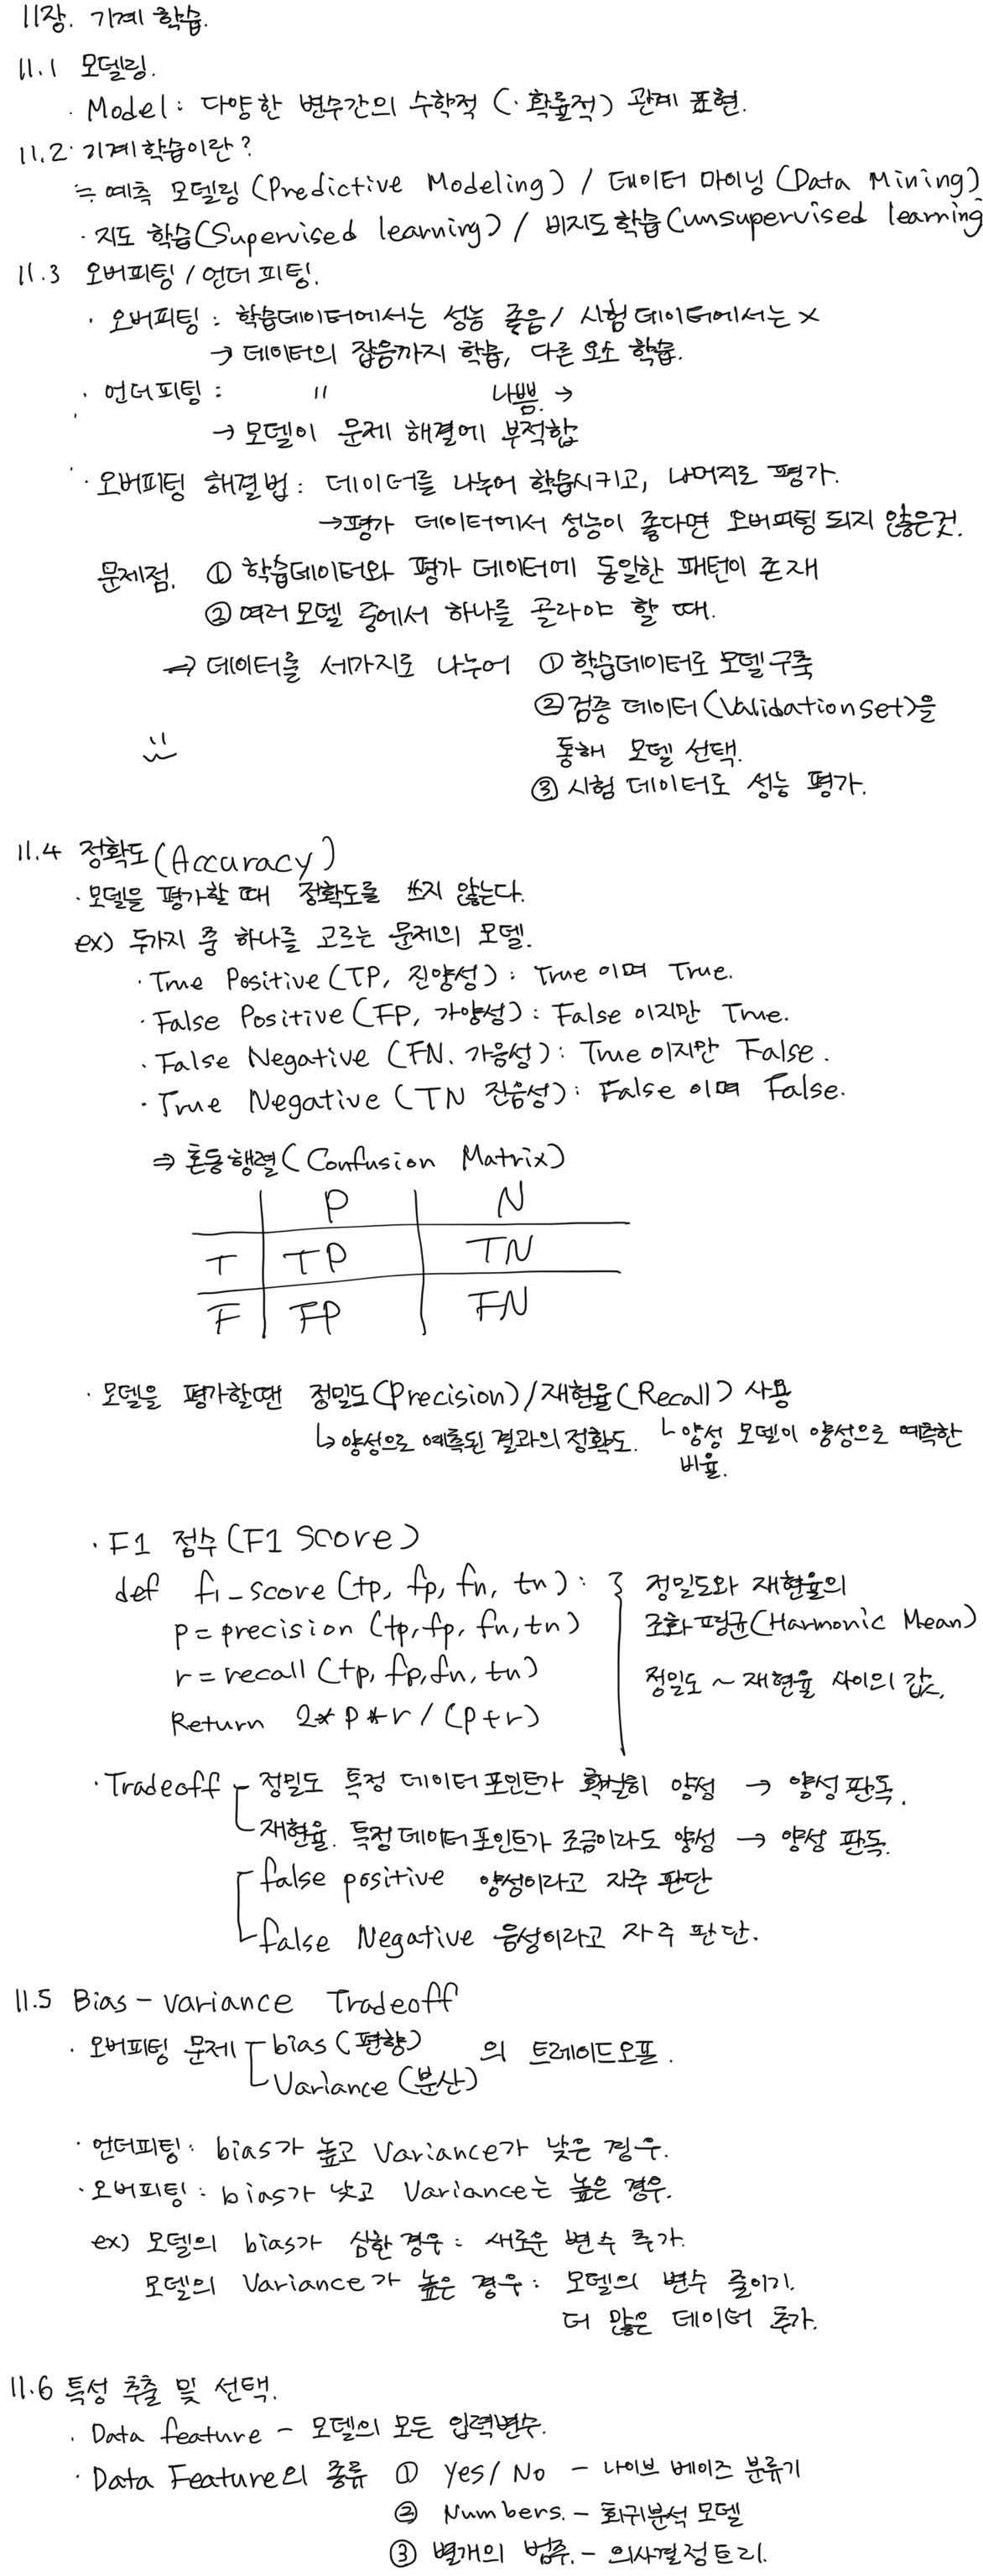 11장. 기계 학습.
11.1 모델링.
· Model : 다양한 변수간의 수학적 (·확률적) 관계 표현.
11.2 기계학습이란?
≒ 예측 모델링 (Predictive Modeling) / 데이터 마이닝 (Data Mining)
· 지도 학습(Supervised learning) / 비지도학습(unsupervised learning
11.3 오버피팅 / 언더피팅.
· 오버피팅 : 학습데이터에서는 성능 좋음 / 시험 데이터에서는 X
→ 데이터의 잡음까지 학습, 다른 요소 학습.
· 언더피팅 : " 나쁨. →
→ 모델이 문제 해결에 부적합
· 오버피팅 해결법 : 데이터를 나누어 학습시키고, 나머지로 평가.
→평가 데이터에서 성능이 좋다면 오버피팅 되지 않은것.
문제점. ① 학습데이터와 평가 데이터에 동일한 패턴이 존재
② 여러 모델 중에서 하나를 골라야 할 때.
⇒ 데이터를 세가지로 나누어 ① 학습데이터로 모델 구축
② 검증 데이터(Validation set)을
통해 모델 선택.
③ 시험 데이터로 성능 평가.
11.4 정확도(Accuracy)
· 모델을 평가할 때 정확도를 쓰지 않는다.
ex) 두가지 중 하나를 고르는 문제의 모델.
· True Positive (TP, 진양성) : True 이며 True.
· False Positive (FP, 가양성) : False 이지만 True.
· False Negative (FN. 가음성) : True 이지만 False.
· True Negative (TN 진음성) : False 이며 False.
⇒ 혼동행렬(Confusion Matrix)
P N
T TP TN
F FP FN
· 모델을 평가할땐 정밀도(Precision)/재현율(Recall) 사용
↳ 양성으로 예측된 결과의 정확도. ↳ 양성 모델이 양성으로 예측한
비율.
· F1 점수 (F1 Score)
def f1_score (tp, fp, fn, tn) : 정밀도와 재현율의
p = precision (tp, fp, fn, tn) 조화평균(Harmonic Mean)
r = recall (tp, fp, fn, tn) 정밀도 ~ 재현율 사이의 값.
Return 2*p*r / (p+r)
· Tradeoff 정밀도 특정 데이터 포인트가 확실히 양성 → 양성 판독.
재현율. 특정 데이터 포인트가 조금이라도 양성 → 양성 판독.
false positive 양성이라고 자주 판단
false Negative 음성이라고 자주 판단.
11.5 Bias - variance Tradeoff
· 오버피팅 문제 bias (편향) 의 트레이드오프.
Variance (분산)
· 언더피팅 : bias가 높고 Variance가 낮은 경우.
· 오버피팅 : bias가 낮고 Variance는 높은 경우.
ex) 모델의 bias가 심한 경우 : 새로운 변수 추가.
모델의 Variance가 높은 경우 : 모델의 변수 줄이기.
더 많은 데이터 추가.
11.6 특성 추출 및 선택.
· Data feature - 모델의 모든 입력변수.
· Data Feature의 종류 ① Yes/ No - 나이브 베이즈 분류기
② Numbers. - 회귀분석 모델
③ 별개의 범주. - 의사결정트리.